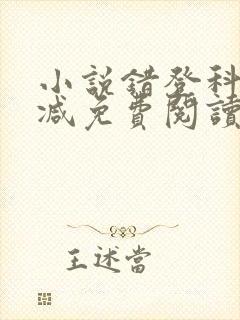 小說錯登科
減免費閱讀
王述當